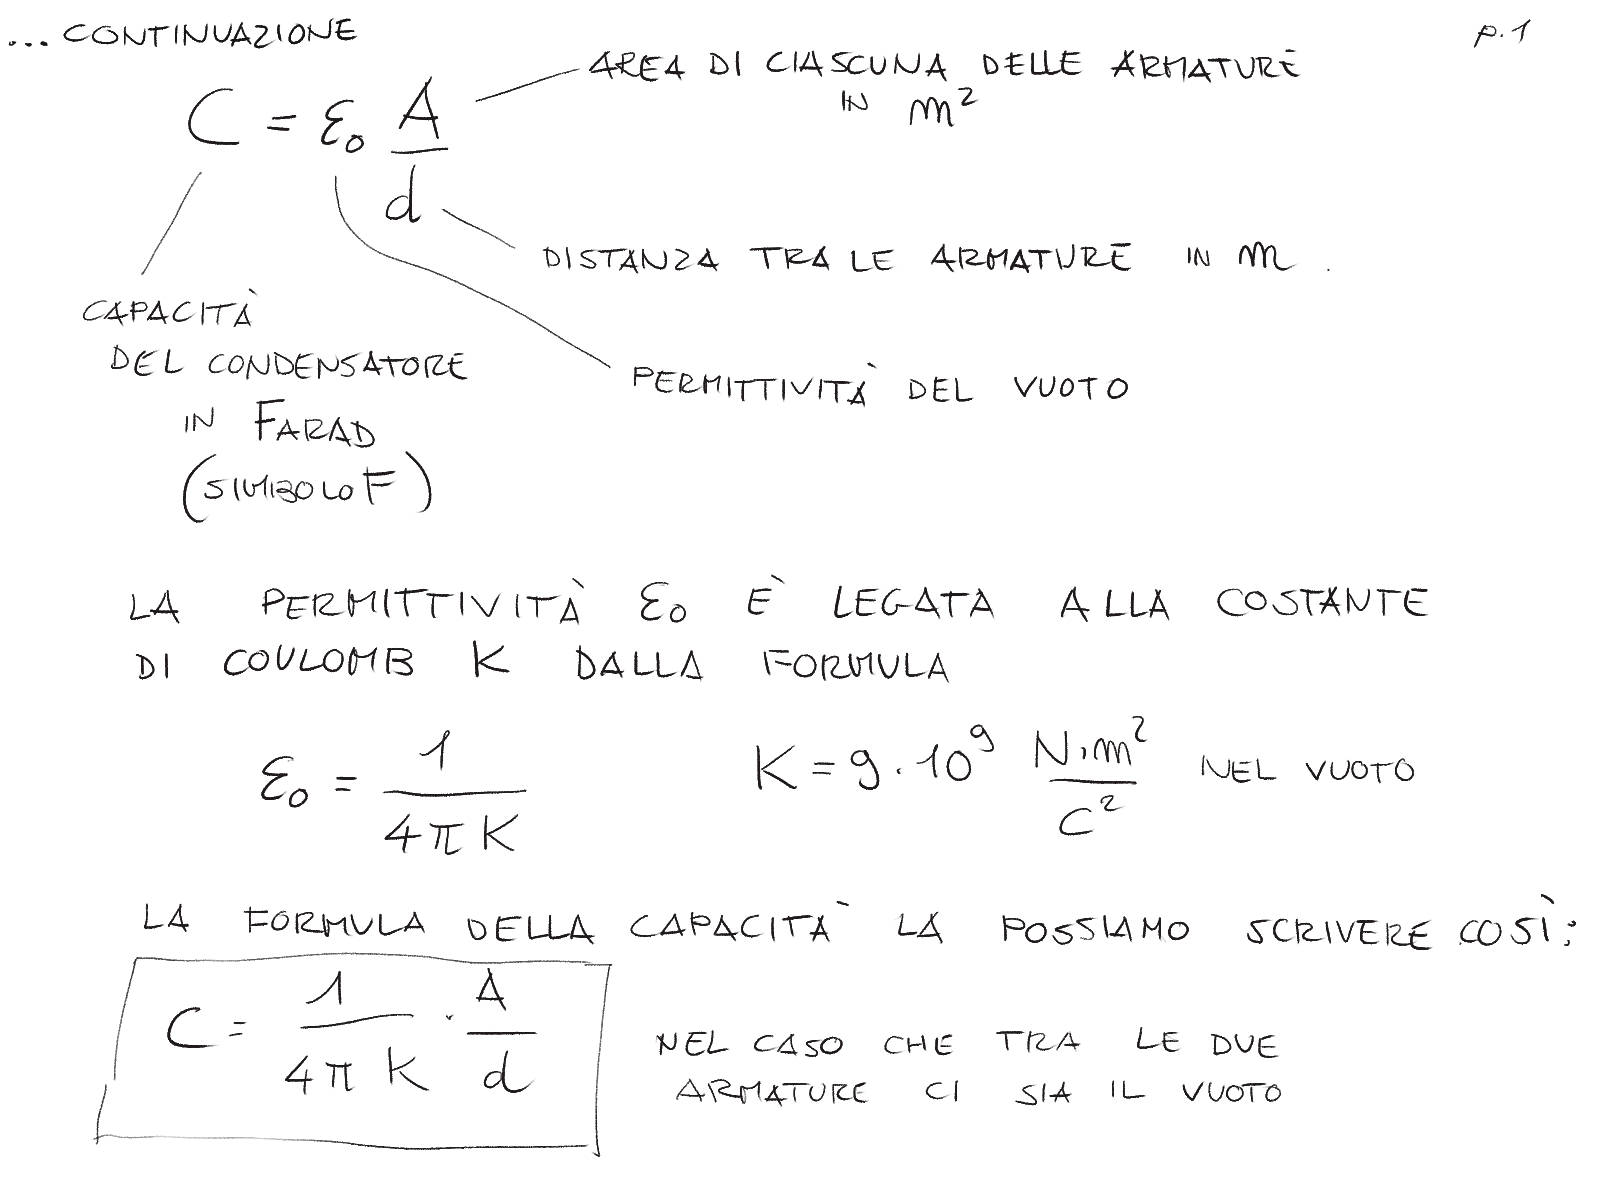 ... CONTINUAZIONE
p.1
C = ε₀ A/d
AREA DI CIASCUNA DELLE ARMATURE
IN m²
DISTANZA TRA LE ARMATURE IN m.
CAPACITÀ
DEL CONDENSATORE
IN FARAD
(SIMBOLO F)
PERMITTIVITÀ DEL VUOTO
LA PERMITTIVITÀ ε₀ È LEGATA ALLA COSTANTE
DI COULOMB K DALLA FORMULA
ε₀ = 1/(4πK)
K = 9·10⁹ N·m²/C² NEL VUOTO
LA FORMULA DELLA CAPACITÀ LA POSSIAMO SCRIVERE COSÌ:
C = 1/(4πK) · A/d
NEL CASO CHE TRA LE DUE
ARMATURE CI SIA IL VUOTO